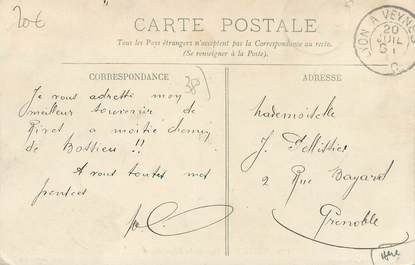 20€
CARTE POSTALE
Tous les Pays étrangers n'acceptent pas la Correspondance au recto.
(Se renseigner à la Poste).
CORRESPONDANCE
38
Je vous adresse mon
meilleur souvenir de
Rivet a moitié chemin
de Bossieu !!
A vous toutes mes
pensées
ADRESSE
Mademoiselle
J. Pellissier
2 Rue Bayard
Grenoble
20
JUIL